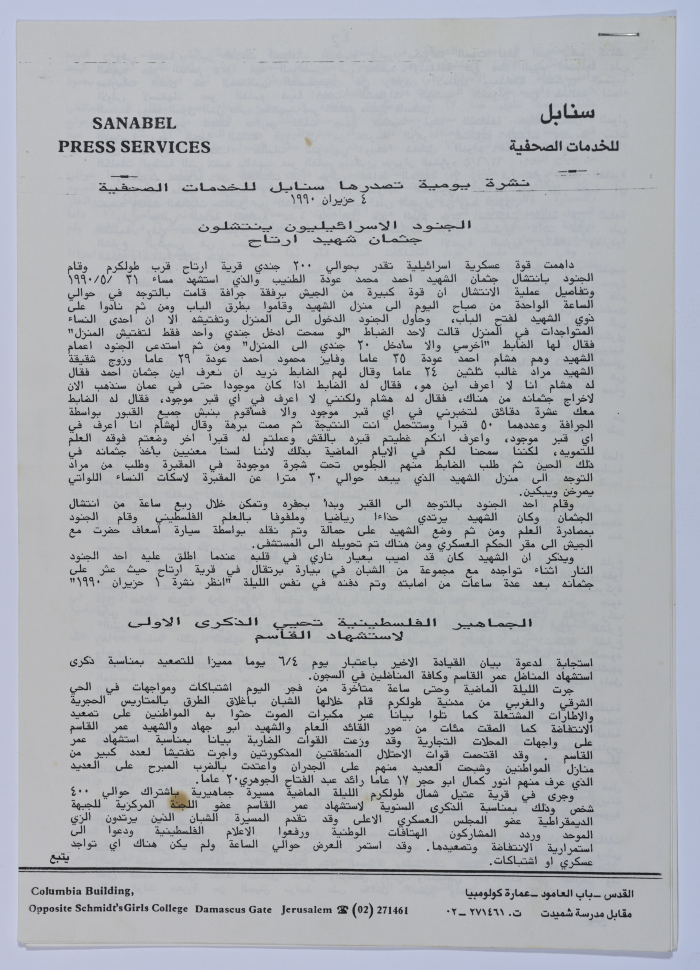 سنابل
للخدمات الصحفية
SANABEL
PRESS SERVICES
نشرة يومية تصدرها سنابل للخدمات الصحفية
٤ حزيران ١٩٩٠
الجنود الاسرائيليون ينتشلون
جثمان شهيد ارتاح
داهمت قوة عسكرية اسرائيلية تقدر بحوالي ٢٠٠ جندي قرية ارتاح قرب طولكرم وقام
الجنود بانتشال جثمان الشهيد احمد محمد عودة الطنيب والذي استشهد مساء ٣١ /٥/ ١٩٩٠
وتفاصيل عملية الانتشال ان قوة كبيرة من الجيش برفقة جرافة قامت بالتوجه في حوالي
الساعة الواحدة من صباح اليوم الى منزل الشهيد وقاموا بطرق الباب ومن ثم نادوا على
ذوي الشهيد لفتح الباب، وحاول الجنود الدخول الى المنزل وتفتيشه الا ان احدى النساء
المتواجدات في المنزل قالت لاحد الضباط "لو سمحت ادخل جندي واحد فقط لتفتيش المنزل"
فقال لها الضابط "اخرسي والا سادخل ٢٠ جندي الى المنزل" ومن ثم استدعى الجنود اعمام
الشهيد وهم هشام احمد عودة ٣٥ عاما وفايز محمود احمد عودة ٢٩ عاما وزوج شقيقة
الشهيد مراد غالب ثلثين ٢٤ عاما وقال لهم الضابط نريد ان نعرف اين جثمان احمد فقال
له هشام انا لا اعرف اين هو، فقال له الضابط اذا كان موجودا حتى في عمان سنذهب الان
لاخراج جثمانه من هناك، فقال له هشام ولكنني لا اعرف في اي قبر موجود، فقال له الضابط
معك عشرة دقائق لتخبرني في اي قبر موجود والا فسأقوم بنبش جميع القبور بواسطة
الجرافة وعددهما ٥٠ قبرا وستتحمل انت النتيجة ثم صمت برهة وقال لهشام انا اعرف في
اي قبر موجود، واعرف انكم غطيتم قبره بالقش وعملتم له قبرا اخر وضعتم فوقه العلم
للتمويه، لكننا سمحنا لكم في الايام الماضية بذلك لاننا لسنا معنيين بأخذ جثمانه في
ذلك الحين ثم طلب الضابط منهم الجلوس تحت شجرة موجودة في المقبرة وطلب من مراد
التوجه الى منزل الشهيد الذي يبعد حوالي ٣٠ مترا عن المقبرة لاسكات النساء اللواتي
يصرخن ويبكين.
وقام احد الجنود بالتوجه الى القبر وبدأ بحفره وتمكن خلال ربع ساعة من انتشال
الجثمان وكان الشهيد يرتدي حذاءا رياضيا وملفوفا بالعلم الفلسطيني وقام الجنود
بمصادرة العلم ومن ثم وضع الشهيد على حمالة وتم نقله بواسطة سيارة أسعاف حضرت مع
الجيش الى مقر الحكم العسكري ومن هناك تم تحويله الى المستشفى.
ويذكر ان الشهيد كان قد اصيب بعيار ناري في قلبه عندما اطلق عليه احد الجنود
النار اثناء تواجده مع مجموعة من الشبان في بيارة برتقال في قرية ارتاح حيث عثر على
جثمانه بعد عدة ساعات من اصابته وتم دفنه في نفس الليلة "انظر نشرة ١ حزيران ١٩٩٠"
الجماهير الفلسطينية تحيي الذكرى الاولى
لاستشهاد القاسم
استجابة لدعوة بيان القيادة الاخير باعتبار يوم ٦/٤ يوما مميزا للتصعيد بمناسبة ذكرى
استشهاد المناضل عمر القاسم وكافة المناضلين في السجون.
جرت الليلة الماضية وحتى ساعة متأخرة من فجر اليوم اشتباكات ومواجهات في الحي
الشرقي والغربي من مدنية طولكرم قام خلالها الشبان باغلاق الطرق بالمتاريس الحجرية
والاطارات المشتعلة كما تلوا بيانا عبر مكبرات الصوت حثوا به المواطنين على تصعيد
الانتفاضة كما الصقت مئات من صور القائد العام والشهيد ابو جهاد والشهيد عمر القاسم
على واجهات المحلات التجارية وقد وزعت القوات الضاربة بيانا بمناسبة استشهاد عمر
القاسم . وقد اقتحمت قوات الاحتلال المنطقتين المذكورتين واجرت تفتيشا لعدد كبير من
منازل المواطنين وشبحت العديد منهم على الجدران واعتدت بالضرب المبرح على العديد
الذي عرف منهم انور كمال ابو حجر ١٧ عاما رائد عبد الفتاح الجوهري ٢٠ عاما.
وجرى في قرية عتيل شمال طولكرم الليلة الماضية مسيرة جماهيرية باشتراك حوالي ٤٠٠
شخص وذلك بمناسبة الذكرى السنوية لاستشهاد عمر القاسم عضو اللجنة المركزية للجبهة
الديمقراطية عضو المجلس العسكري الاعلى وقد تقدم المسيرة الشبان الذين يرتدون الزي
الموحد وردد المشاركون الهتافات الوطنية ورفعوا الاعلام الفلسطينية ودعوا الى
استمرارية الانتفاضة وتصعيدها. وقد استمر العرض حوالي الساعة ولم يكن هناك اي تواجد
عسكري او اشتباكات.
يتبع
القدس _باب العامود _عمارة كولومبيا
مقابل مدرسة شميدت ت. ٢٧١٤٦١ _٠٢
Columbia Building,
Opposite Schmidt's Girls College Damascus Gate Jerusalem ☎ (02) 271461